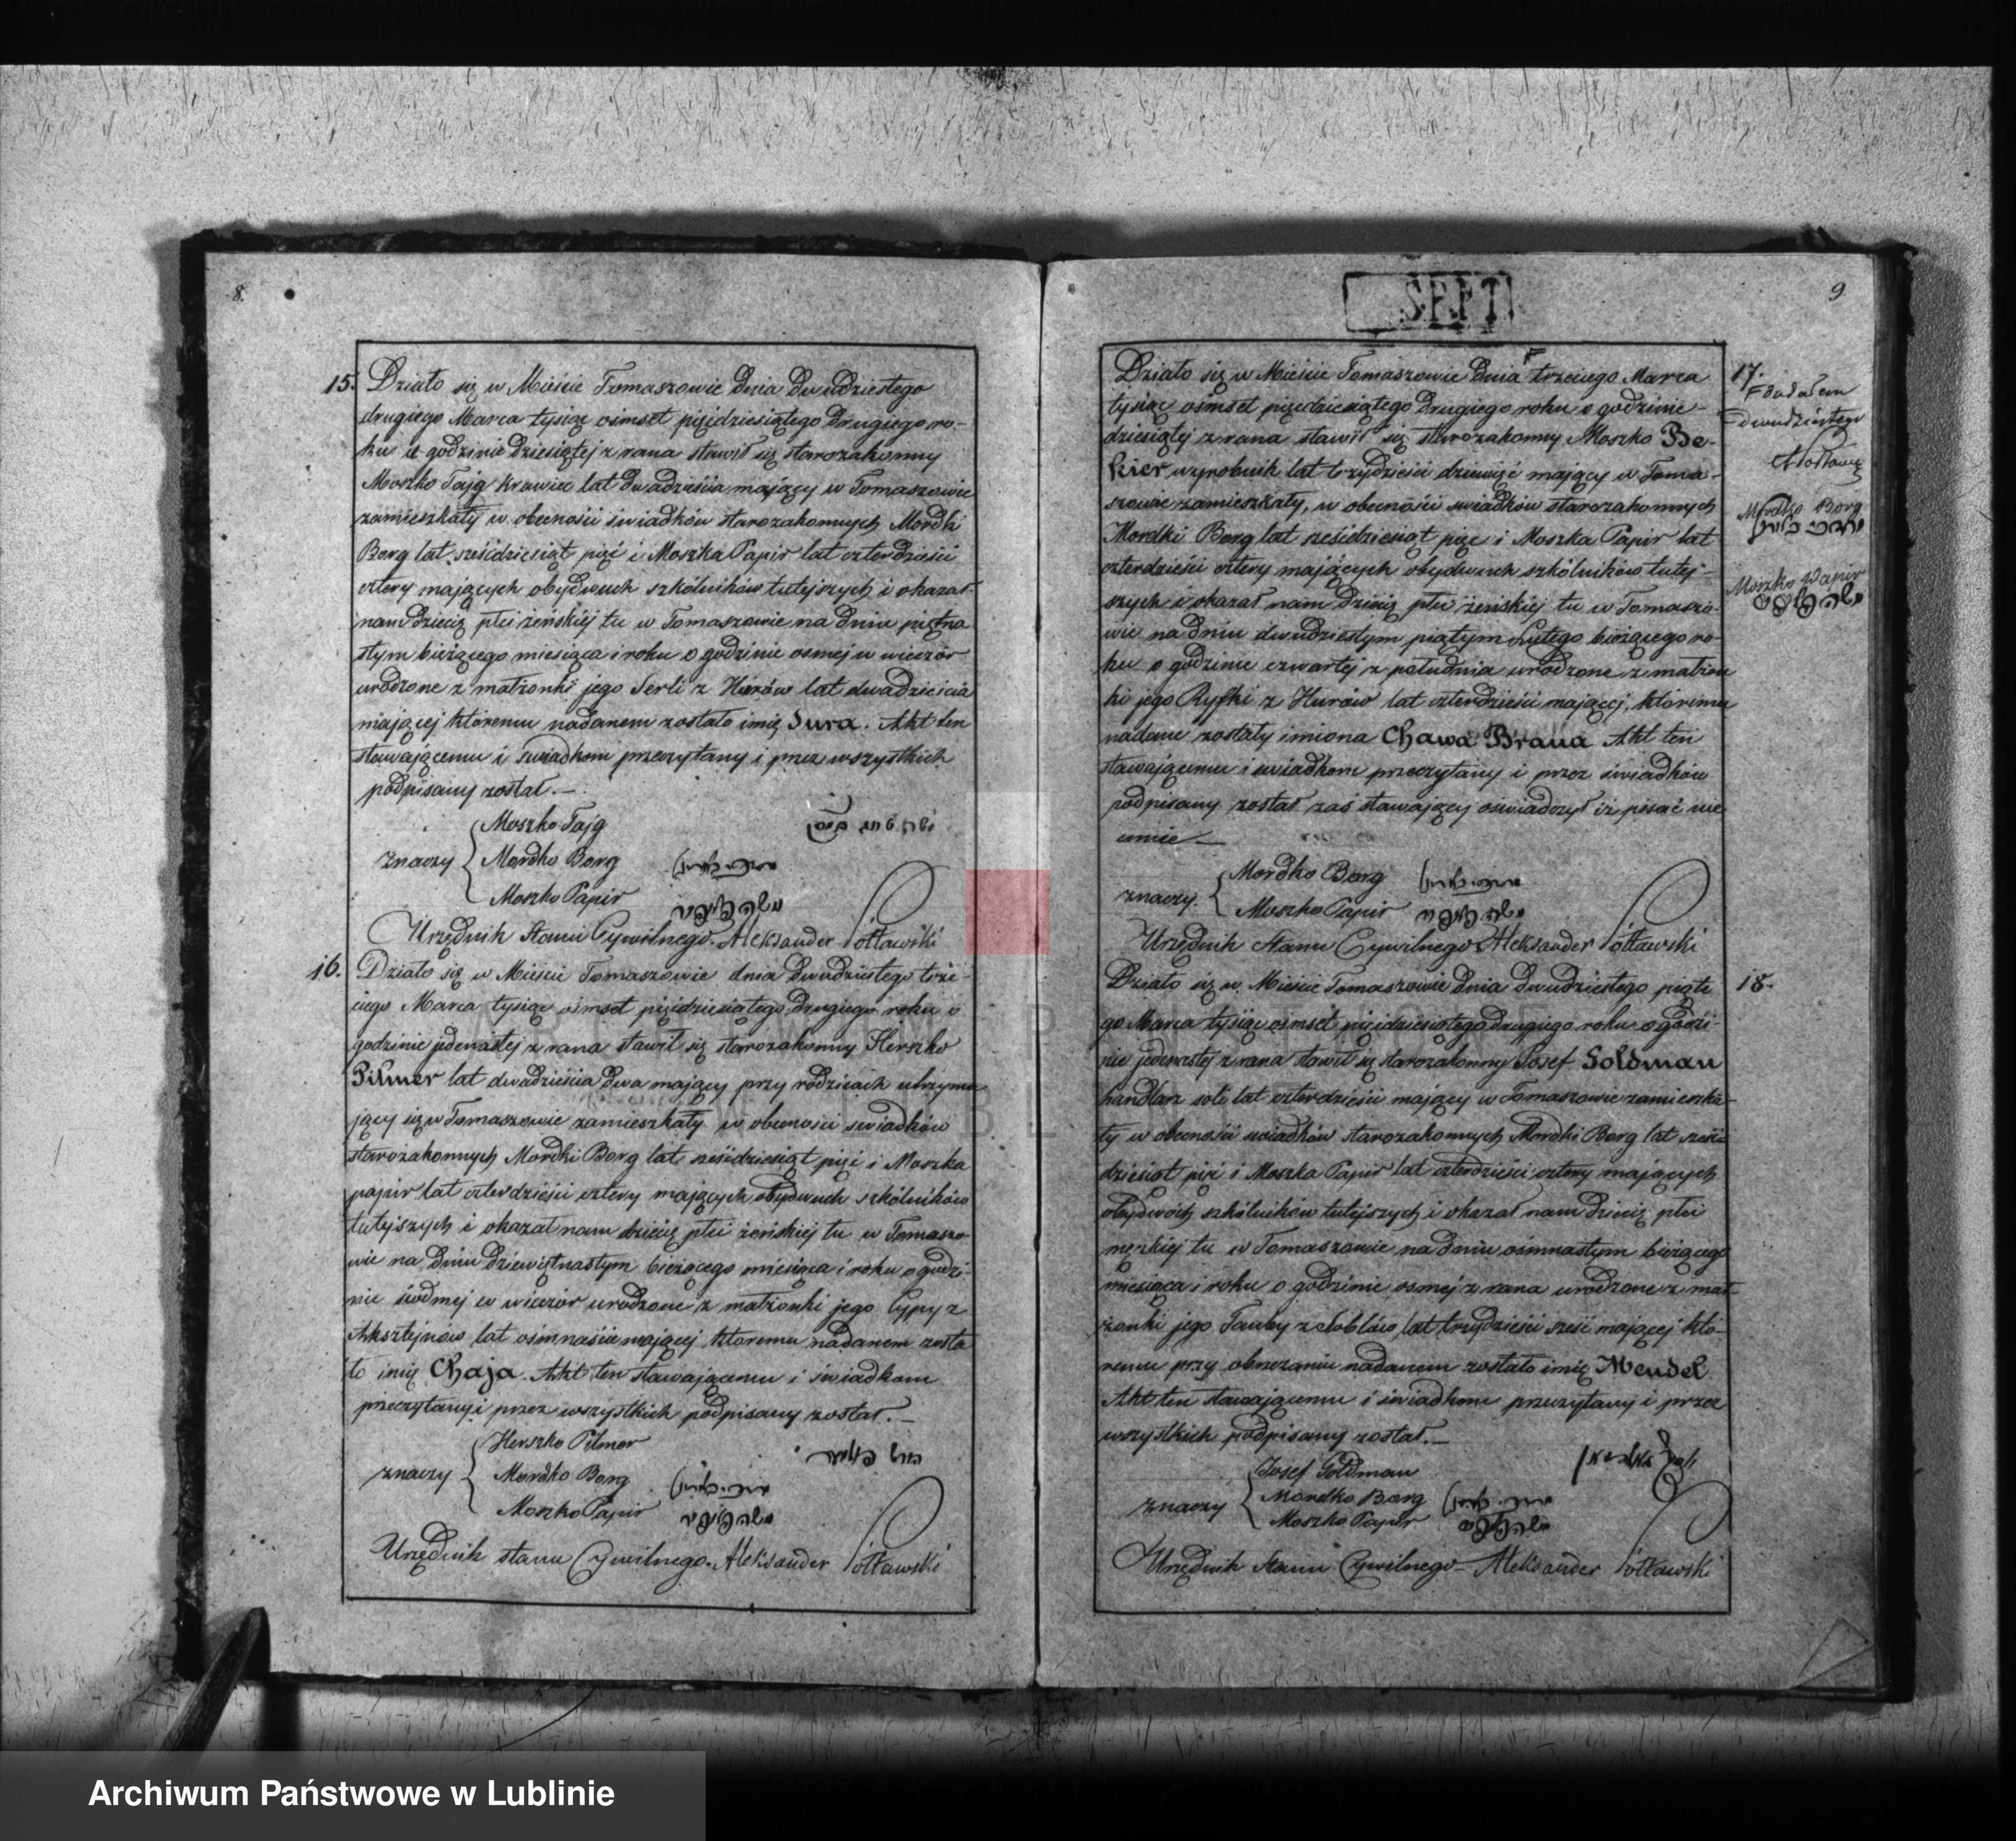 8.
15. Działo się w Mieście Tomaszowie dnia dwudziestego
drugiego Marca tysiąc ośmset pięidziesiątego drugiego ro-
ku o godzinie dziesiątej z rana stawił się starozakonny
Moszko Tajg krawiec lat dwadzieścia mający w Tomaszowie
zamieszkały w obecności świadków starozakonnych Mordki
Borg lat sześćdziesiąt pięć i Moszka Papir lat czterdzieści
cztery mających obydwuch szkólników tutejszych i okazał
nam dziecię płci żeńskiej tu w Tomaszowie na dniu piętna
stym bieżącego miesiąca i roku o godzinie osmej w wieczór
urodzone z małżonki jego Serli z lat dwadzieścia
mającej któremu nadanem zostało imię Sura. Akt ten
stawającemu i świadkom przeczytany i przez wszystkich
podpisany został.—
Moszko Tajg
znaczy Mordko Borg
Moszko Papir
Urzędnik Stanu Cywilnego. Aleksander Sottawski
16. Działo się w Mieście Tomaszowie dnia dwudziestego trze-
ciego Marca tysiąc ośmset pięidziesiątego drugiego roku o
godzinie jedenastej z rana stawił się starozakonny Herszko
Pilmer lat dwadzieścia dwa mający przy rodzicach utrzymu
jący się w Tomaszowie zamieszkały w obecności świadków
starozakonnych Mordki Borg lat sześćdziesiąt pięć i Moszka
papir lat czterdzieści cztery mających obydwuch szkólników
tutejszych i okazał nam dziecię płci żeńskiej tu w Tomaszo-
wie na dniu dziewiętnastym bieżącego miesiąca i roku o godzi-
nie siódmej w wieczór urodzone z małżonki jego Cypy z
Aksztejnów lat ośmnaście mającej któremu nadanem zosta
ło imię Chaja. Akt ten stawającemu i świadkom
przeczytany i przez wszystkich podpisany został.—
Herszko Pilmer
znaczy Mordko Borg
Moszko Papir
Urzędnik stanu Cywilnego. Aleksander Sottawski
9
SEPT
17. Działo się w Mieście Tomaszowie dnia trzeciego Marca
tysiąc ośmset pięcdziesiątego drugiego roku o godzinie
dziesiątej z rana stawił się starozakonny Moszko Be-
kier wyrobnik lat trzydzieści dziewięć mający w Toma-
szowie zamieszkały, w obecności świadków starozakonnych
Mordki Borg lat sześćdziesiąt pięć i Moszka Papir lat
czterdzieści cztery mających obydwuch szkólników tutej-
szych i okazał nam dziecię płci żeńskiej tu w Tomaszo-
wie na dniu dwudziestym piątym Lutego bieżącego ro-
ku o godzinie czwartej z południa urodzone z małżon
ki jego Ryfki z Hurów lat czterdzieści mającej, któremu
nadane zostały imiona Chawa Brana Akt ten
stawającemu i świadkom przeczytany i przez świadków
podpisany został zaś stawający oświadczył iż pisać nie
umie—
Mordko Borg
znaczy
Moszko Papir
Urzędnik Stanu Cywilnego Aleksander Sottawski
dwudziestego
Mordko Borg
Moszko Papir
18. Działo się w Mieście Tomaszowie dnia dwudziestego piąte
go Marca tysiąc ośmset pięidziesiątego drugiego roku o godzi-
nie jedenastej z rana stawił się starozakonny Josef Goldman
handlarz soli lat czterdzieści mający w Tomaszowie zamieszka-
ły w obecności świadków starozakonnych Mordki Borg lat sześć
dziesiąt pięć i Moszka Papir lat czterdzieści cztery mających
obydwóch szkólników tutejszych i okazał nam dziecię płci
męzkiej tu w Tomaszowie na dniu ośmnastym bieżącego
miesiąca i roku o godzinie osmej z rana urodzone z mał-
żonki jego Tauby z lat trzydzieści sześć mającej któ-
remu przy obrzezaniu nadanem zostało imię Mendel
Akt ten stawającemu i świadkom przeczytany i przez
wszystkich podpisany został.—
Josef Goldman
znaczy Mordko Borg
Moszko Papir
Urzędnik Stanu Cywilnego— Aleksander Sottawski
Archiwum Państwowe w Lublinie